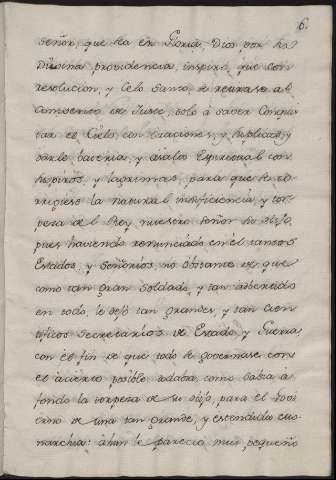 6.
Señor, que sea en Gloria, Dios por su
Divina providencia, inspiró, que con
resolucion, y Celo Santo, se retirase al
Combento de Juste, solo á saver Conquis
tar el Cielo, con oraciones, y suplicas, y
darle bateria, y asaltos Espirituales con
suspiros, y lagrimas, para que
la natural insuficiencia, y tor
peza del Rey, nuestro Señor su hijo,
pues haviendo renunciado en el tantos
Estados, y Señorios, no obstante de que
como tan gran Soldado, y tan advertido
en todo, le dejó tan grandes, y tan cien
tificos Secretarios de Estado y Guerra
con el fin de que todo se governase con
el acierto posible todavia, como sabia á
fondo la torpeza de su hijo, para el Govi
erno de una tan grande, y estendida mo
narchia: ahun le pareció mui pequeño